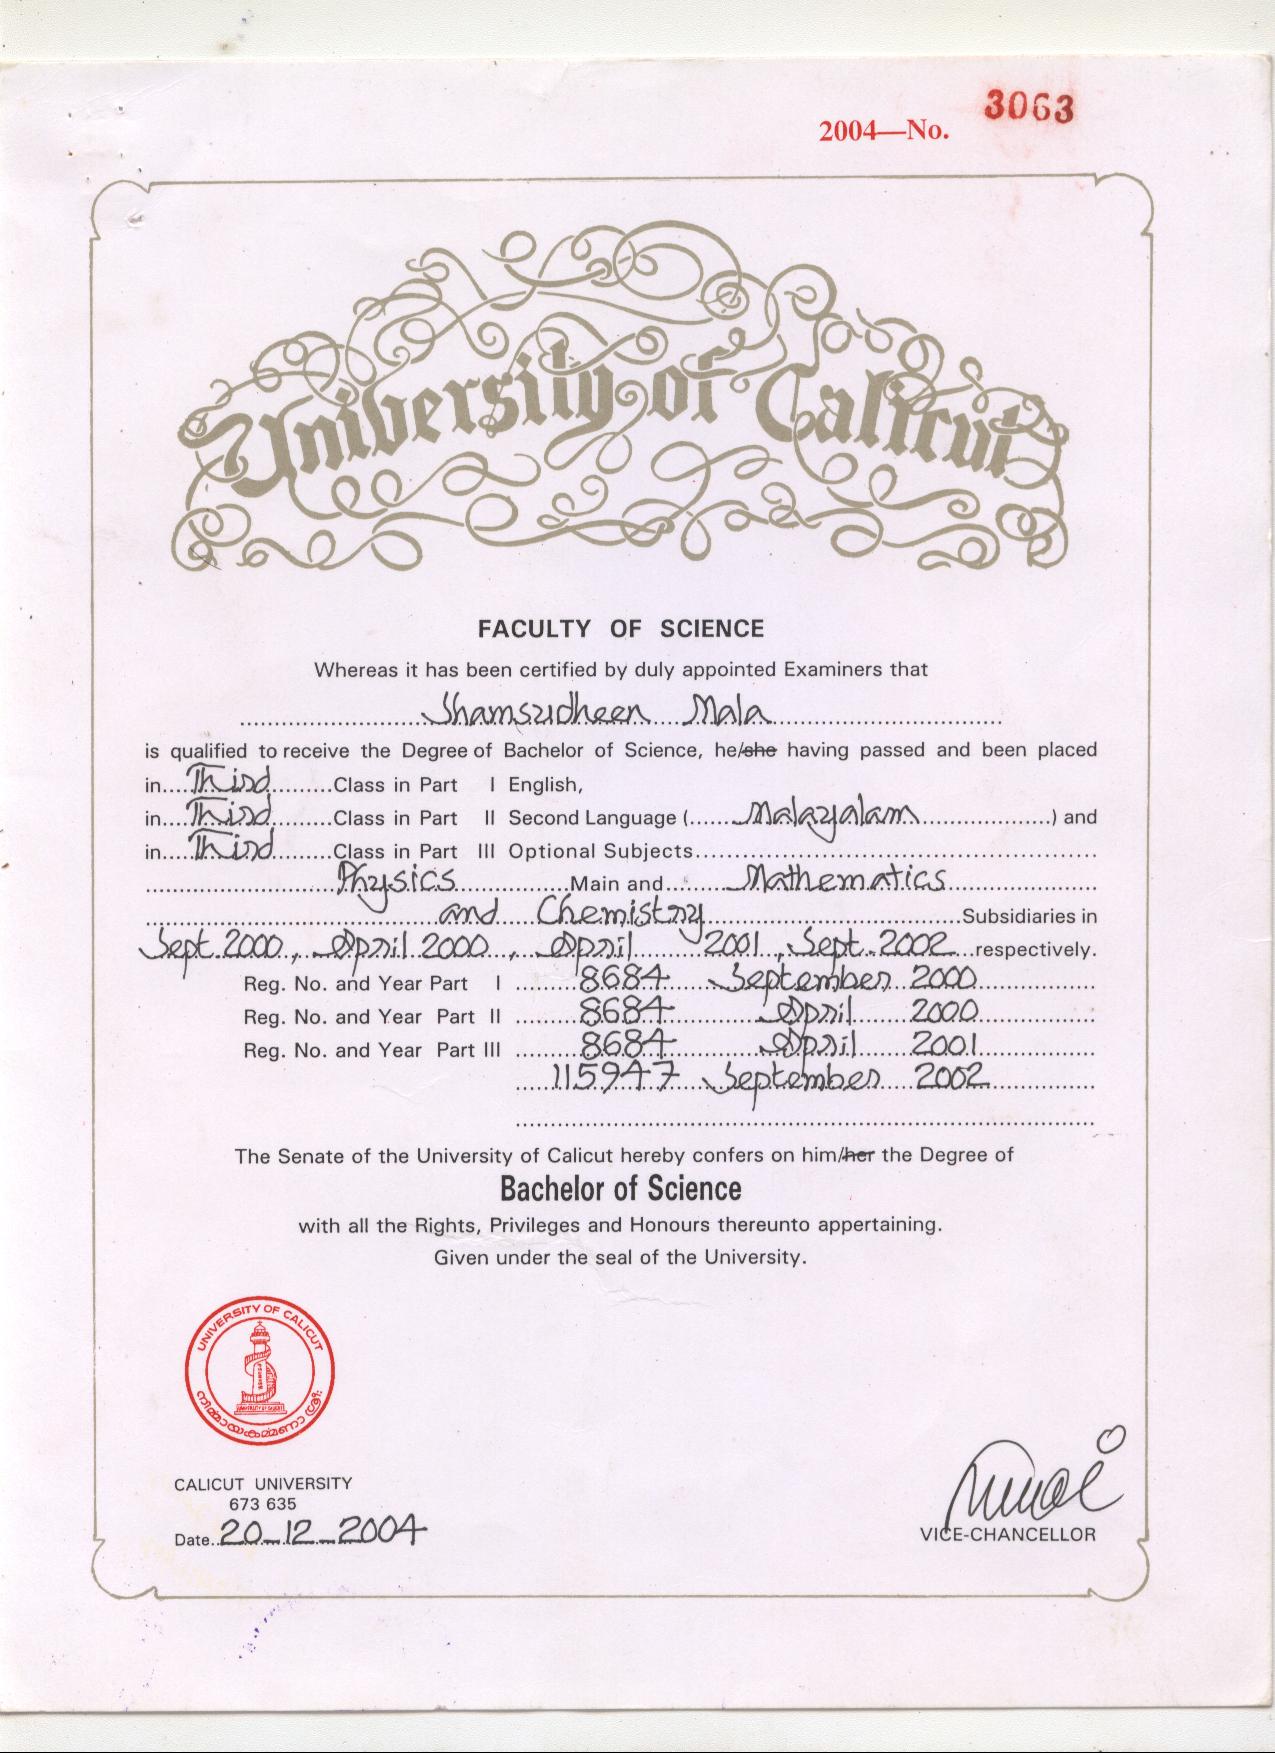 3063
2004—No.
University of Calicut
FACULTY OF SCIENCE
Whereas it has been certified by duly appointed Examiners that
Shamsudheen Mala
is qualified to receive the Degree of Bachelor of Science, he/she having passed and been placed
in....Third..........Class in Part I English,
in....Third..........Class in Part II Second Language (......Malayalam....................) and
in....Third..........Class in Part III Optional Subjects
Physics Main and Mathematics
and Chemistry Subsidiaries in
Sept. 2000, April 2000, April 2001, Sept. 2002 respectively.
Reg. No. and Year Part I 8684 September 2000
Reg. No. and Year Part II 8684 April 2000
Reg. No. and Year Part III 8684 April 2001
115947 September 2002
The Senate of the University of Calicut hereby confers on him/her the Degree of
Bachelor of Science
with all the Rights, Privileges and Honours thereunto appertaining.
Given under the seal of the University.
UNIVERSITY OF CALICUT
നിർമ്മായകർമ്മണാ ശ്രീഃ
CALICUT UNIVERSITY
673 635
Date 20-12-2004
VICE-CHANCELLOR